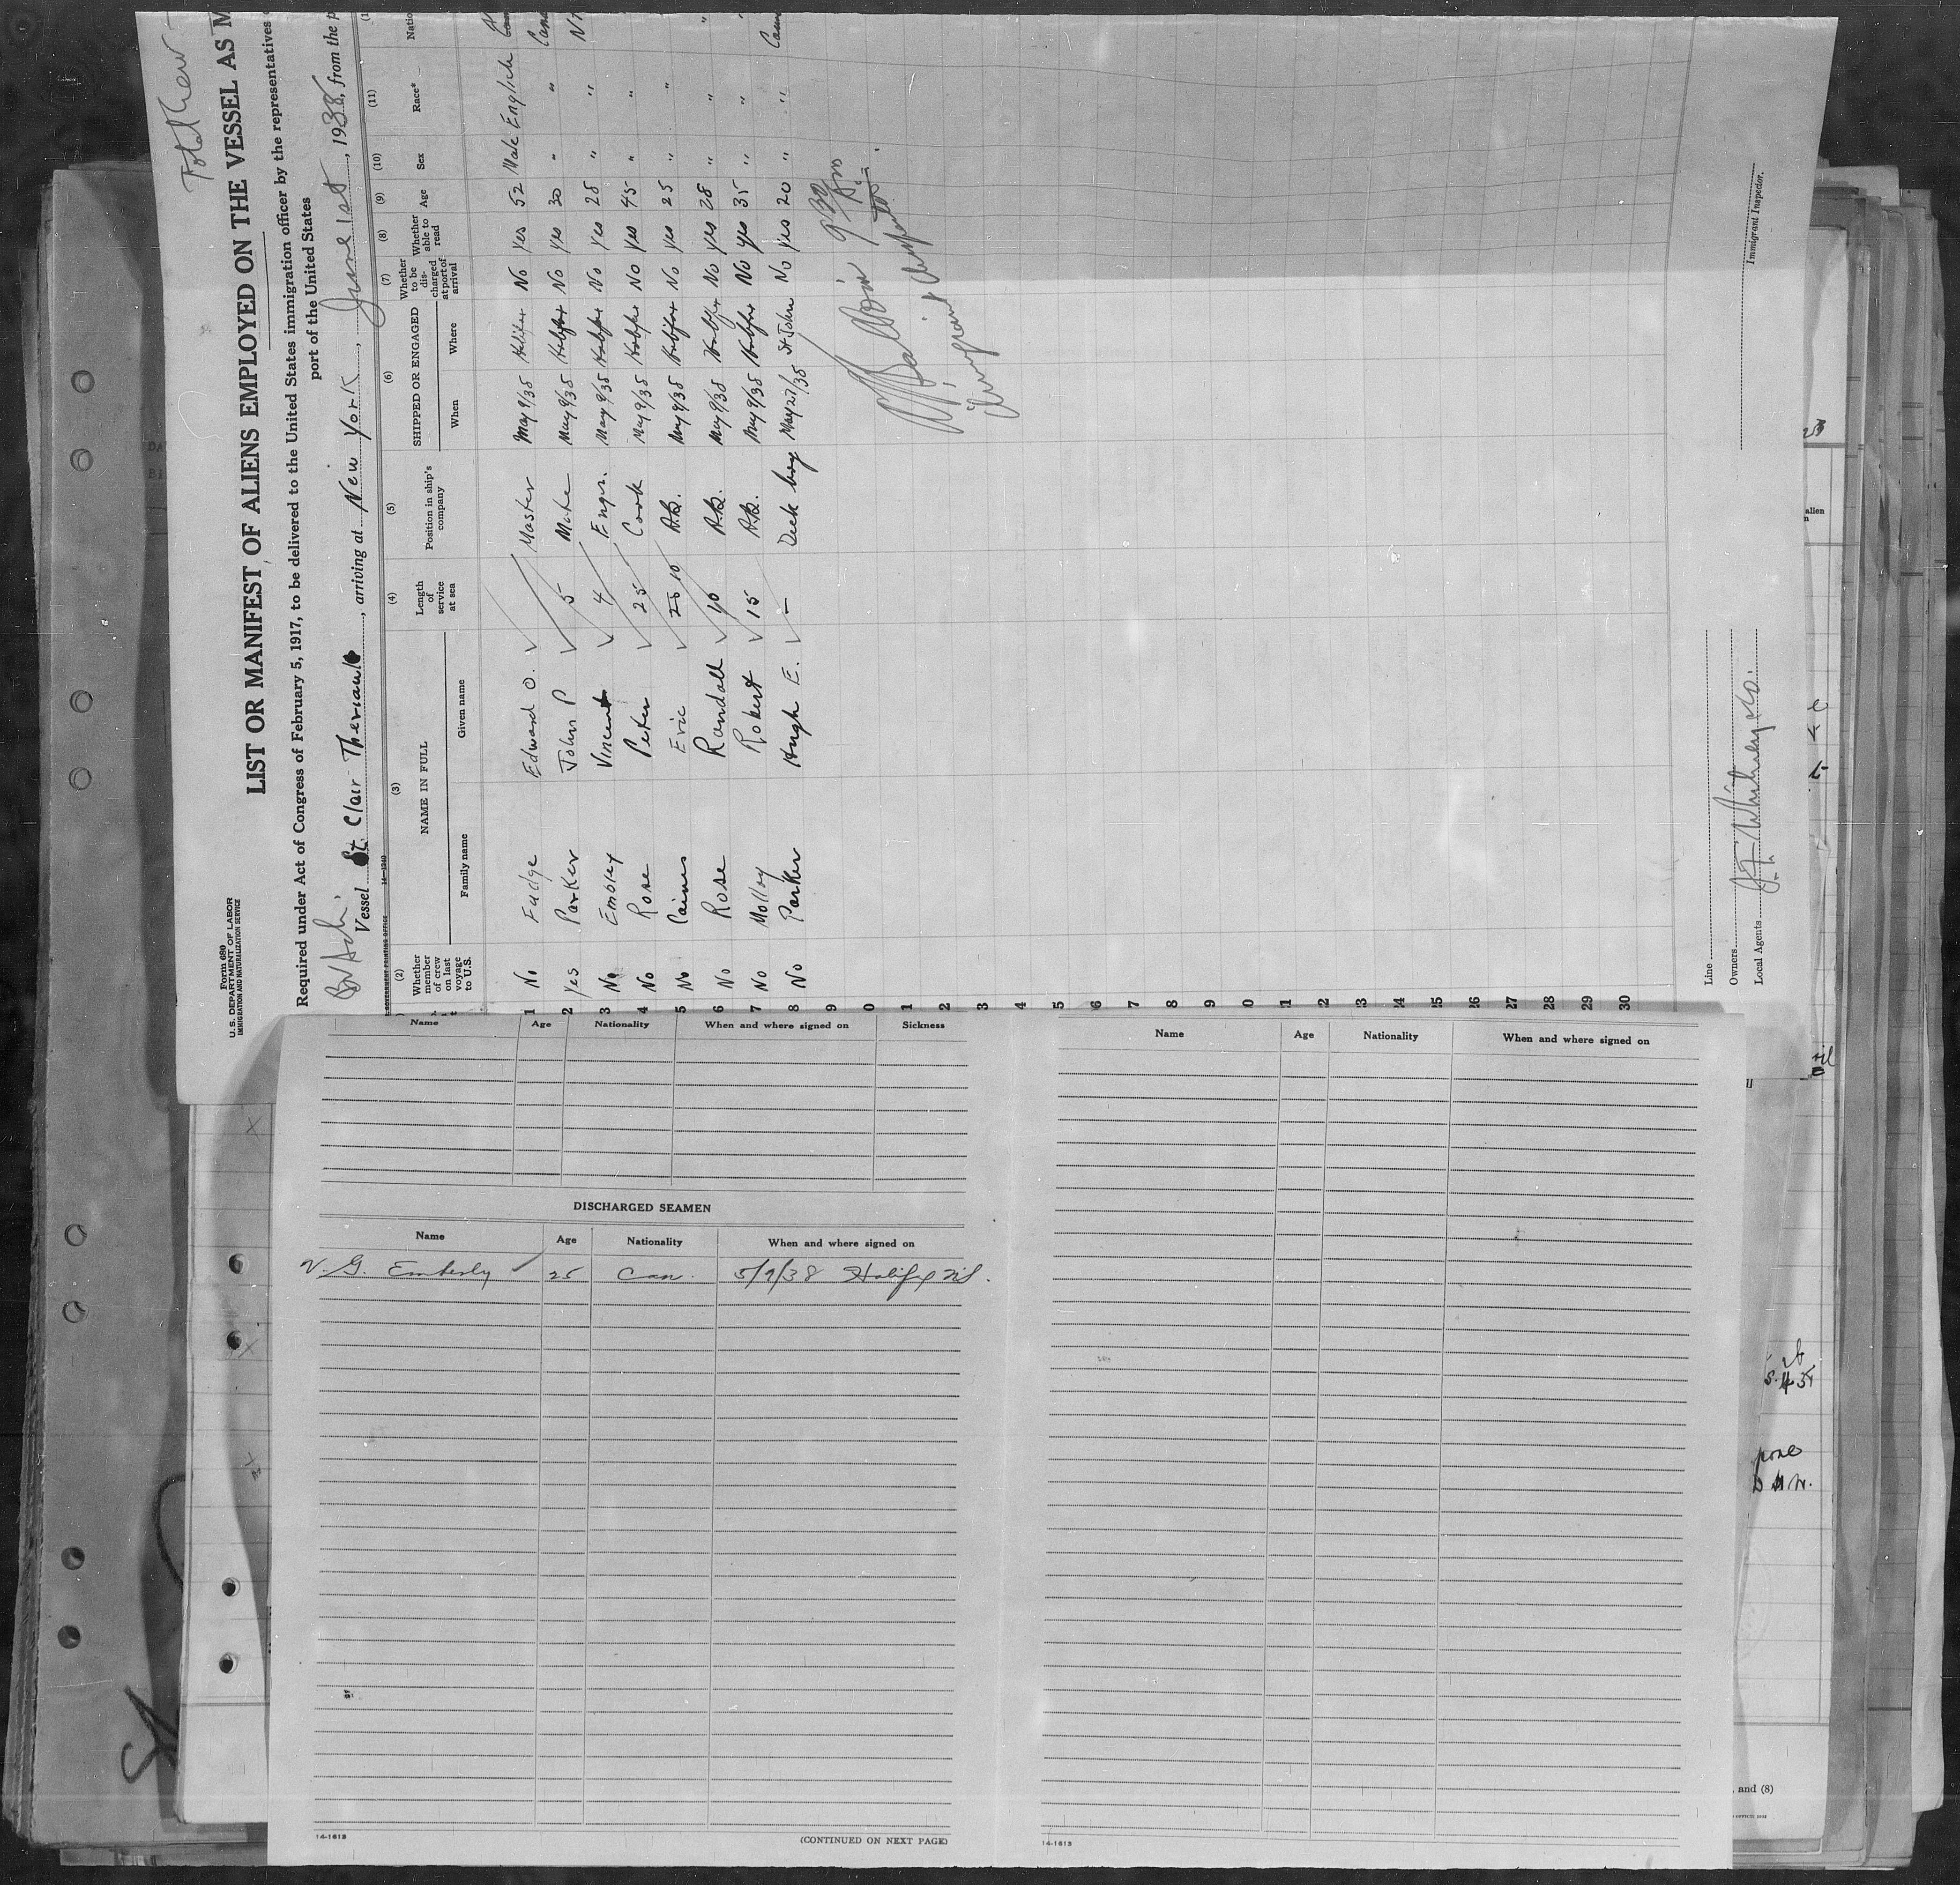 Form 680
U.S. DEPARTMENT OF LABOR
IMMIGRATION AND NATURALIZATION SERVICE
LIST OR MANIFEST OF ALIENS EMPLOYED ON THE VESSEL AS M
Required under Act of Congress of February 5, 1917, to be delivered to the United States immigration officer by the representatives
port of the United States
Vessel St. Clair Theriault, arriving at New York, June 1st, 1938, from the p
(2) (3) (4) (5) (6) (7) (8) (9) (10) (11)
Whether member of crew on last voyage to U.S. NAME IN FULL Length of service at sea Position in ship's company SHIPPED OR ENGAGED Whether to be discharged at port of arrival Whether able to read Age Sex Race* Natio
Family name Given name When Where
1 No Fudge Edward O. Master May 9/38 Halifax No Yes 52 Male English
2 Yes Parker John P 5 Mate May 9/38 Halifax No Yes 30 " " Cana
3 No Embley Vincent 4 Engr. May 9/38 Halifax No Yes 28 " " Nf
4 No Rose Peter 25 Cook May 9/38 Halifax No Yes 45 " "
5 No Caines Eric 10 A.B. May 9/38 Halifax No Yes 25 " "
6 No Rose Randall 10 A.B. May 9/38 Halifax No Yes 28 " " "
7 No Molloy Robert 15 A.B. May 9/38 Halifax No Yes 35 " " "
8 No Parker Hugh E. — Deck boy May 27/38 St John No Yes 20 " " Cana
9
0
1
2
3
4
5
6
7
8
9
0
21
22
23
24
25
26
27
28
29
30
Immigrant Inspector.
Line
Owners
Local Agents
Name Age Nationality When and where signed on Sickness
DISCHARGED SEAMEN
Name Age Nationality When and where signed on
V. G. Emberly 25 Can. 5/9/38 Halifax NS.
14-1613 (CONTINUED ON NEXT PAGE)
Name Age Nationality When and where signed on
14-1613
alien
, and (8)